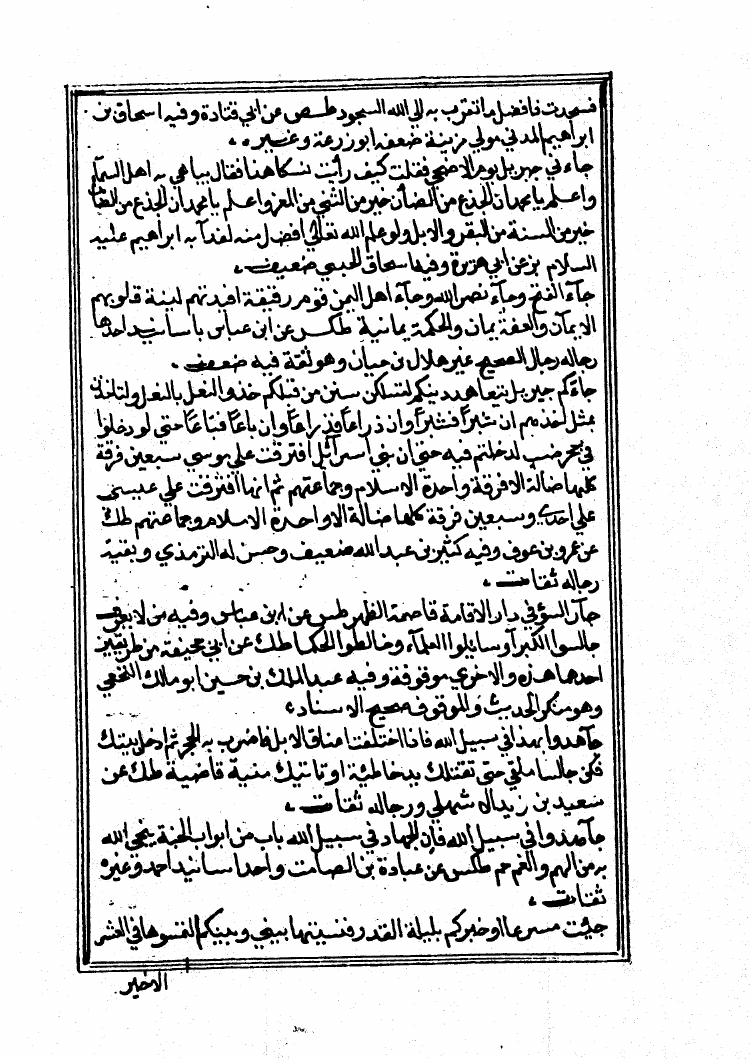 فسجدت فافضل ما تقرب به الى الله السجود طص عن ابي قتادة وفيه اسحاق بن
ابراهيم المدني مولي مزينة ضعفه ابو زرعة وغيره .
جاءني جبريل يوم الاضحى فقلت كيف رأيت نسكنا هذا فقال يباهي به اهل السماء
واعلم يا محمد ان الجذع من الضأن خير من الثني من المعز واعلم يا محمد ان الجذع من الضأن
خير من السنة من البقر والابل ولو علم الله تعالى افضل منه لفدا به ابراهيم عليه
السلام بز عن ابي هريرة وفيه اسحاق الحبيبي ضعيف .
جاء الفتح وجاء نصر الله وجاء اهل اليمن قوم رقيقة افيدتهم لينة قلوبهم
الايمان والفقه يمان والحكمة يمانية طكس عن ابن عباس باسانيد احدها
رجاله رجال الصحيح غير هلال بن حبان وهو ثقة فيه ضعف .
جاءكم جبريل يتعاهد دينكم لتسلكن سنن من قبلكم حذو النعل بالنعل ولتاخذن
بمثل اخذهم ان شبرًا فشبرًا وان ذراعًا فذراعًا وان باعًا فباعًا حتي لو دخلوا
في جحر ضب لدخلتم فيه حتى ان بني اسرائل افترقت علي موسي سبعين فرقة
كلها ضالة الا فرقة واحدة الاسلام وجماعتهم ثم انها افترقت علي عيسى
علي احدى وسبعين فرقة كلها ضالة الا واحدة الاسلام وجماعتهم طك
عن عمرو بن عوف وفيه كثير بن عبد الله ضعيف وحسن له الترمذي وبقية
رجاله ثقات .
جار السؤ في دار الاقامة قاصمة الظهر طس عن ابن عباس وفيه من لا يعرف
جالسوا الكبرآ وسائلوا العلمآء وخالطوا الحكما طك عن ابي جحيفة من طريقين
احدها هذه والاخري موقوفة وفيه عبد الملك بن حسين ابو مالك النخعي
وهو منكر الحديث والموقوف صحيح الاسناد .
جاهدوا بهذا في سبيل الله فاذا اختلفت اعناق الابل فاضرب به الحجر ثم ادخل بيتك
فكن جالسا ملقى حتى تقتلك يد خاطئة او تاتيك منية قاضية طك عن
سعيد بن زيد الاشهلي ورجاله ثقات .
جاهدوا في سبيل الله فان الجهاد في سبيل الله باب من ابواب الجنة ينجي الله
به من الهم والغم حم طكس عن عبادة بن الصامت واحد اسانيد احمد وغيره
ثقات .
جئت مسرعا اوخبركم بليلة القدر فنسيتها بيني وبينكم التمسوها في العشر
الاخير